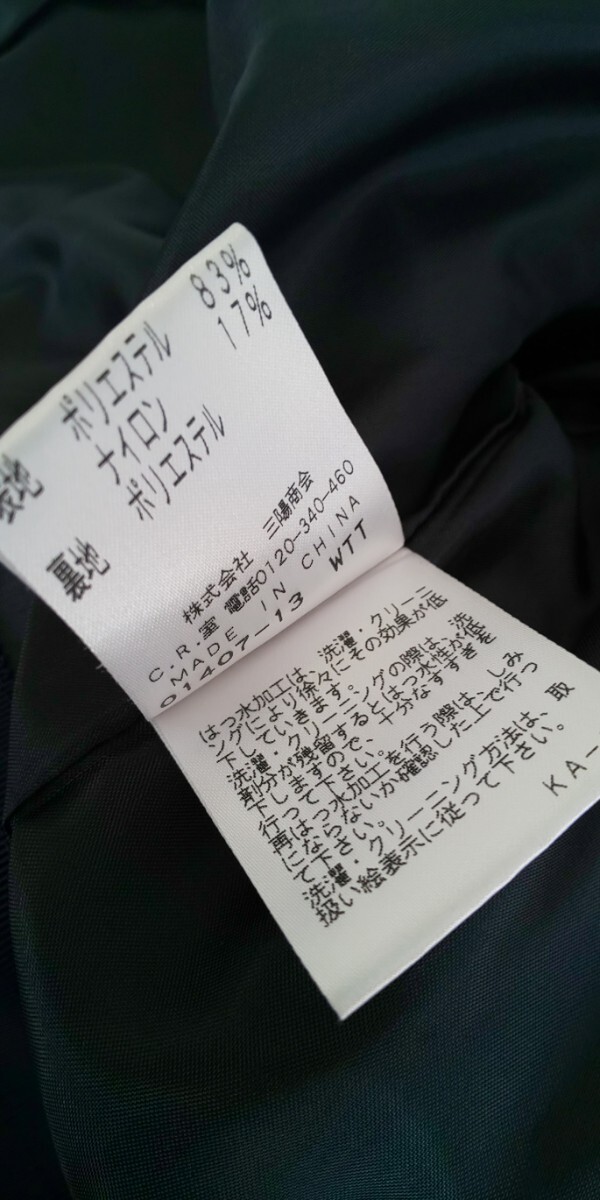 表地 ポリエステル 83%
ナイロン 17%
裏地 ポリエステル
株式会社 三陽商会
C.R.室 電話0120-340-460
MADE IN CHINA
01407-13 WTT
はっ水加工は、洗濯・クリーニ
ングにより徐々にその効果が低
下していきます。
洗濯・クリーニングの際は、洗
剤分が残留するとはっ水性が低
下しますので、十分なすすぎを
行って下さい。
再はっ水加工を行う際は、しみ
にならないか確認した上で行っ
て下さい。
洗濯・クリーニング方法は、取
扱い絵表示に従って下さい。
KA-